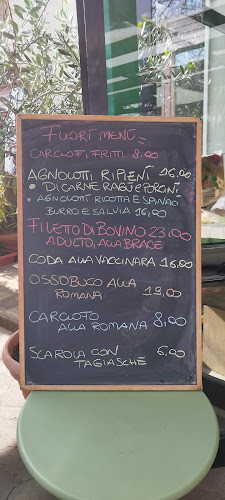 FUORI MENU =
CARCIOFI FRITTI 8,00
AGNOLOTTI RIPIENI 16,00
DI CARNE RAGÙ e PORCINI,
• AGNOLOTTI RICOTTA E SPINACI
BURRO E SALVIA 16,00
FILETTO DI BOVINO 23,00
ADULTO, ALLA BRACE
CODA ALLA VACCINARA 16,00
OSSOBUCO ALLA
ROMANA 19,00
CARCIOFO 8,00
ALLA ROMANA
SCAROLA CON 6,00
TAGIASCHE